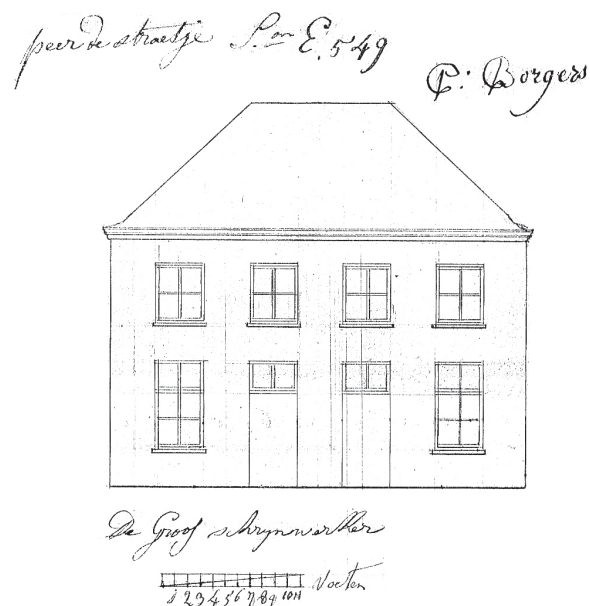 peerdestraetje S.on E. 549
P: Borgers
De Groof schrynwerker
Voeten
1 2 3 4 5 6 7 8 9 10 11